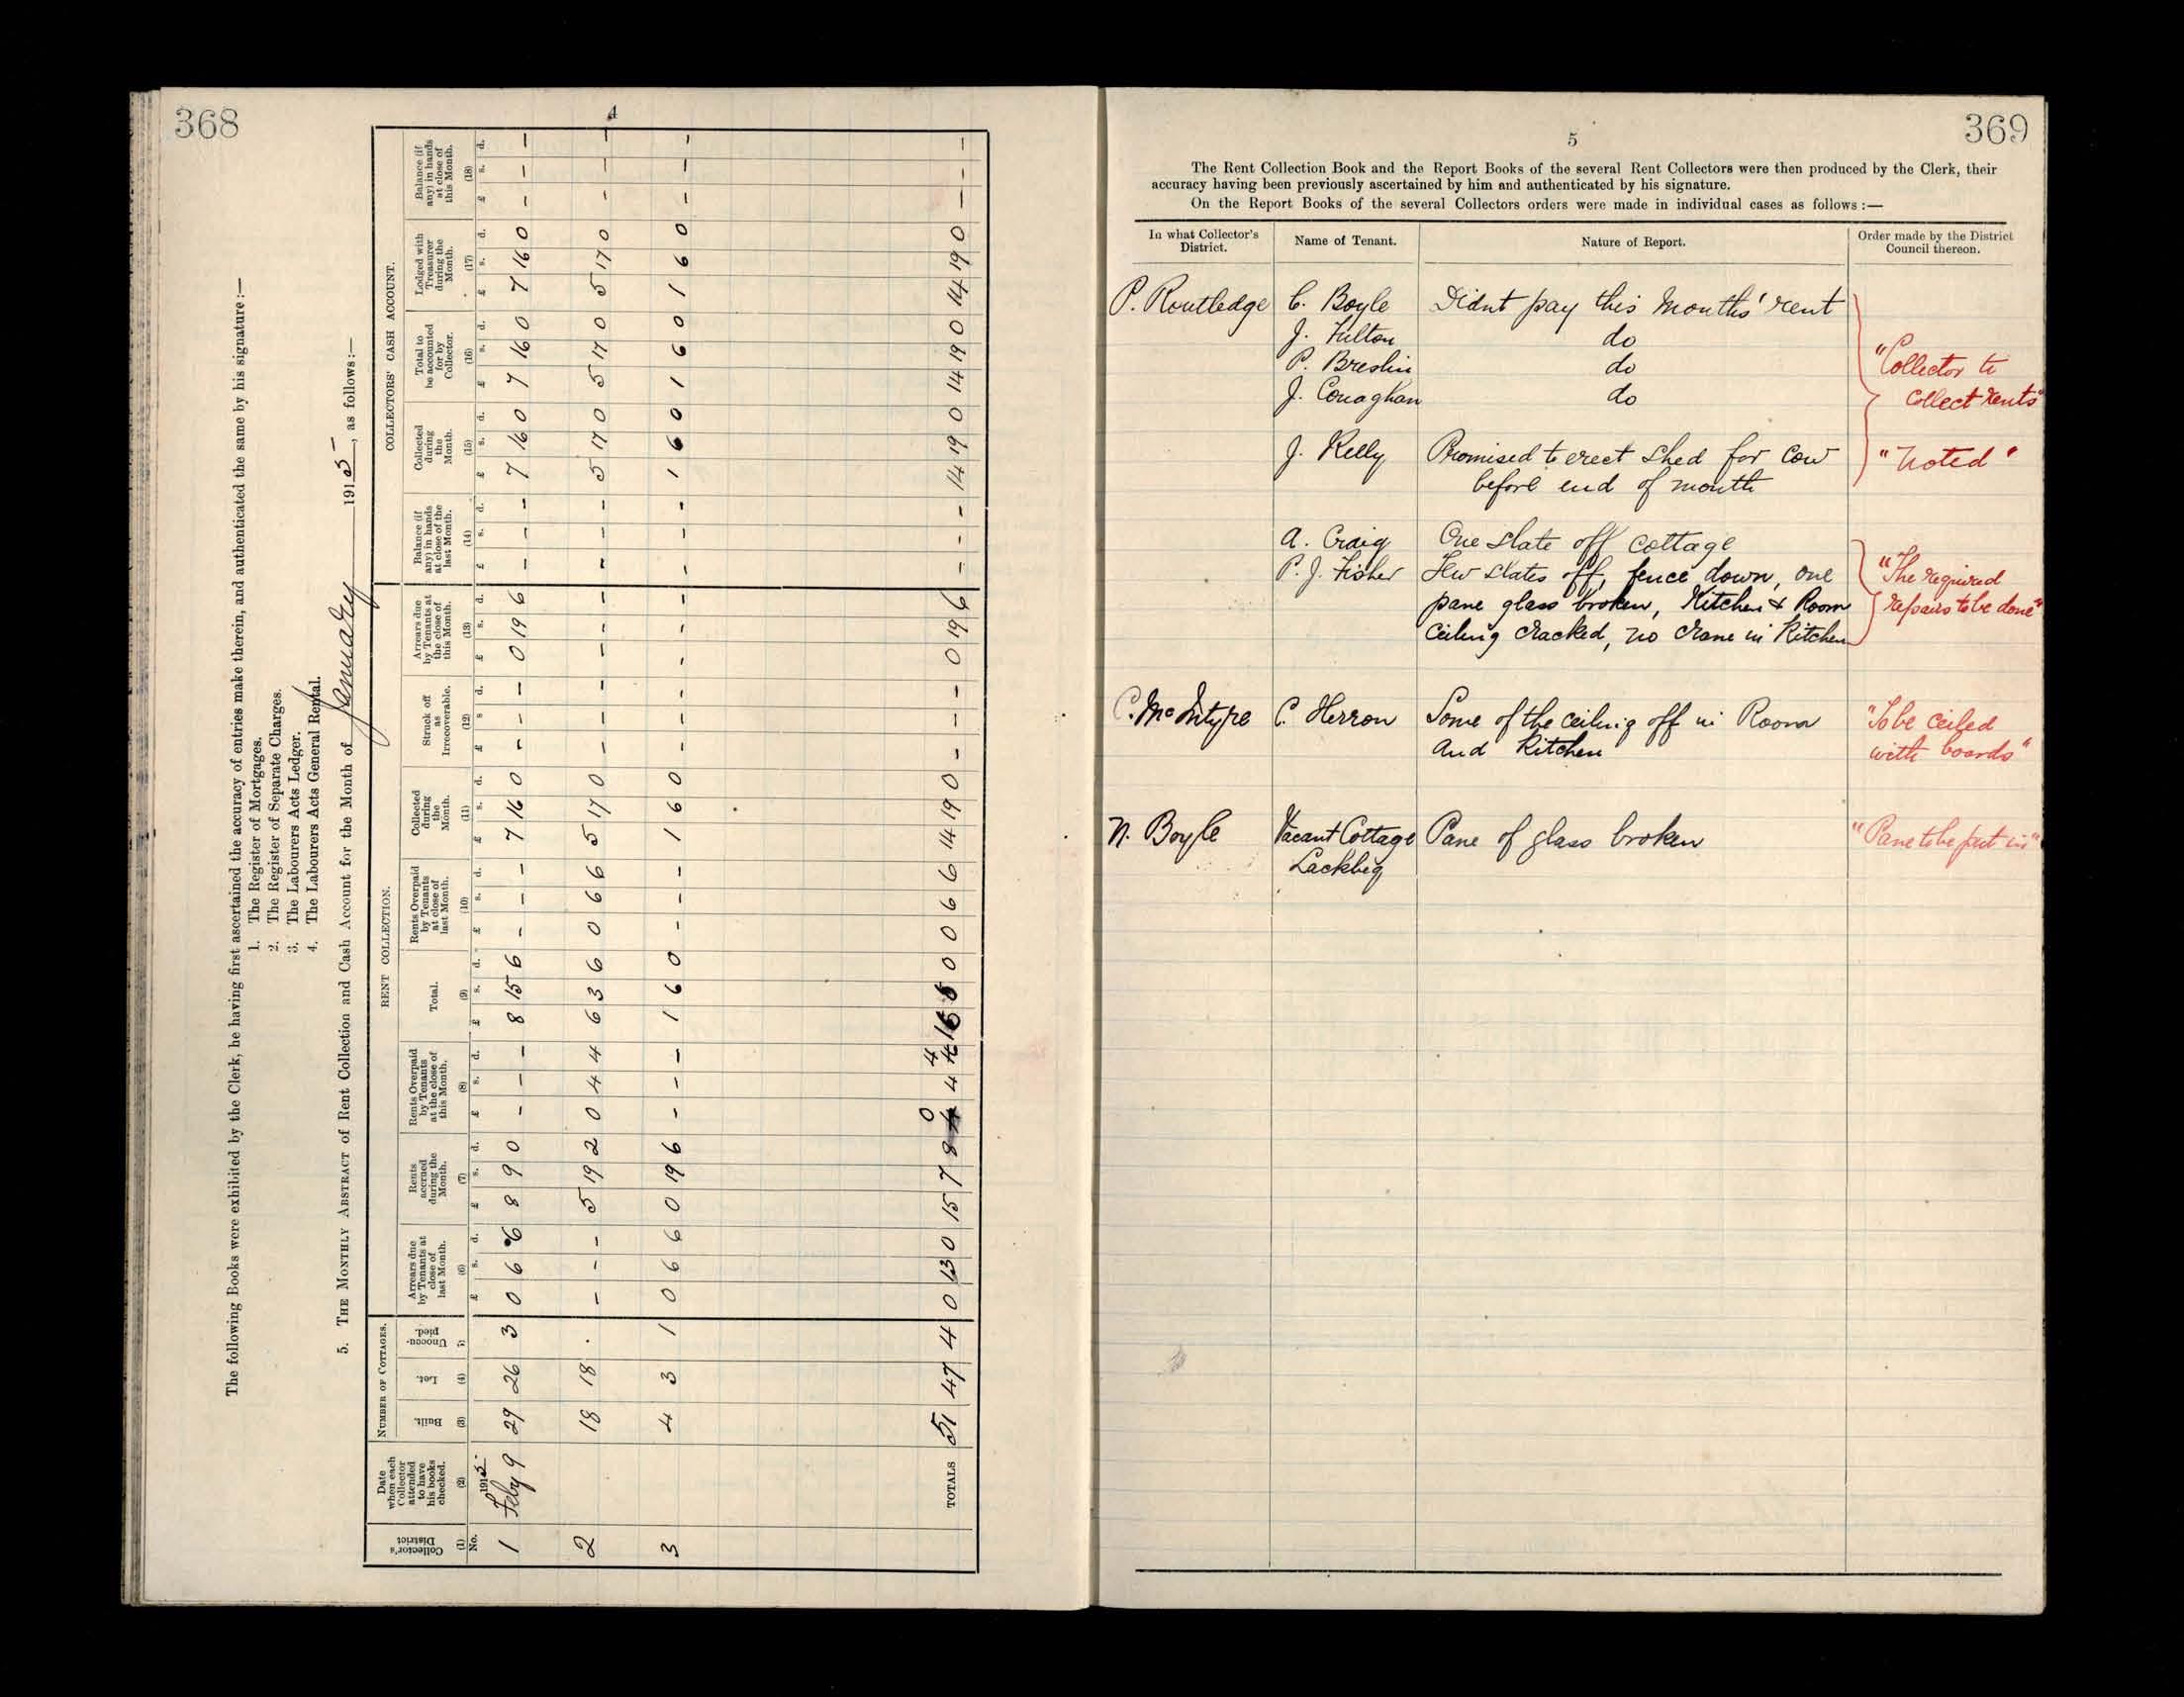 368
4
The following Books were exhibited by the Clerk, he having first ascertained the accuracy of entries make therein, and authenticated the same by his signature :—
1. The Register of Mortgages.
2. The Register of Separate Charges.
3. The Labourers Acts Ledger.
4. The Labourers Acts General Rental.
5. THE MONTHLY ABSTRACT of Rent Collection and Cash Account for the Month of January 1915, as follows:—
NUMBER OF COTTAGES. RENT COLLECTION. COLLECTORS' CASH ACCOUNT.
Collector's District (1) No.
Date when each Collector attended to have his books checked. (2)
Built. (3)
Let. (4)
Unoccupied. 5
Arrears due by Tenants at close of last Month. (6) £ s. d.
Rents accrued during the Month. (7) £ s. d.
Rents Overpaid by Tenants at the close of this Month. (8) £ s. d.
Total. (9) £ s. d.
Rents Overpaid by Tenants at close of last Month. (10) £ s. d.
Collected during the Month. (11) £ s. d.
Struck off as Irrecoverable. (12) £ s d.
Arrears due by Tenants at the close of this Month. (13) £ s. d.
Balance (if any) in hands at close of the last Month. (14) £ s. d.
Collected during the Month. (15) £ s. d.
Total to be accounted for by Collector. (16) £ s. d.
Lodged with Treasurer during the Month. (17) £ s. d.
Balance (if any) in hands at close of this Month. (18) £ s. d.
1915
1 Feby 9 29 26 3 0 6 6 8 9 0 - - - 8 15 6 - - - 7 16 0 - - - 0 19 6 - - - 7 16 0 7 16 0 7 16 0 - - -
2 18 18 . - - - 5 19 2 0 4 4 6 3 6 0 6 6 5 17 0 - - - - - - - - - 5 17 0 5 17 0 5 17 0 - - -
3 4 3 1 0 6 6 0 19 6 - - - 1 6 0 - - - 1 6 0 - - - - - - - - - 1 6 0 1 6 0 1 6 0 - - -
TOTALS 51 47 4 0 13 0 15 7 8 0 4 4 16 5 0 0 6 6 14 19 0 - - - 0 19 6 - - - 14 19 0 14 19 0 14 19 0 - - -
369
5
The Rent Collection Book and the Report Books of the several Rent Collectors were then produced by the Clerk, their
accuracy having been previously ascertained by him and authenticated by his signature.
On the Report Books of the several Collectors orders were made in individual cases as follows :—
In what Collector's District. Name of Tenant. Nature of Report. Order made by the District Council thereon.
P. Routledge C. Boyle Didnt pay this months' rent
J. Fulton do
P. Breslin do "Collector to
J. Conaghan do collect rents"
J. Kelly Promised to erect shed for cow "Noted"
before end of month
A. Craig One slate off cottage
P. J. Fisher Few slates off, fence down, one "The required
pane glass broken, Kitchen & Room repairs to be done"
Ceiling cracked, no crane in Kitchen
C. McIntyre C. Herron Some of the ceiling off in Room "To be ceiled
and Kitchen with boards"
N. Boyle Vacant Cottage Pane of glass broken "Pane to be put in"
Lackbeg